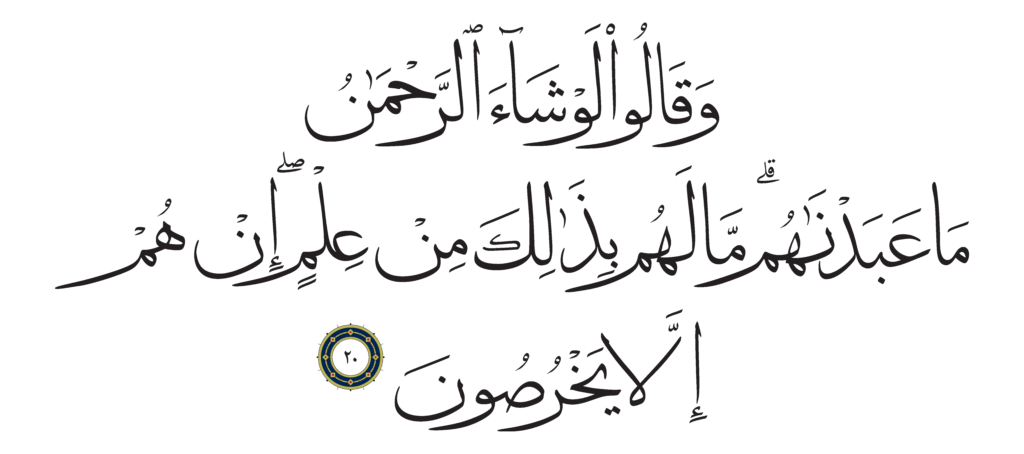 وَقَالُوا۟ لَوْ شَآءَ ٱلرَّحْمَـٰنُ
مَا عَبَدْنَـٰهُم ۗ مَّا لَهُم بِذَٰلِكَ مِنْ عِلْمٍ ۖ إِنْ هُمْ
إِلَّا يَخْرُصُونَ ٢٠